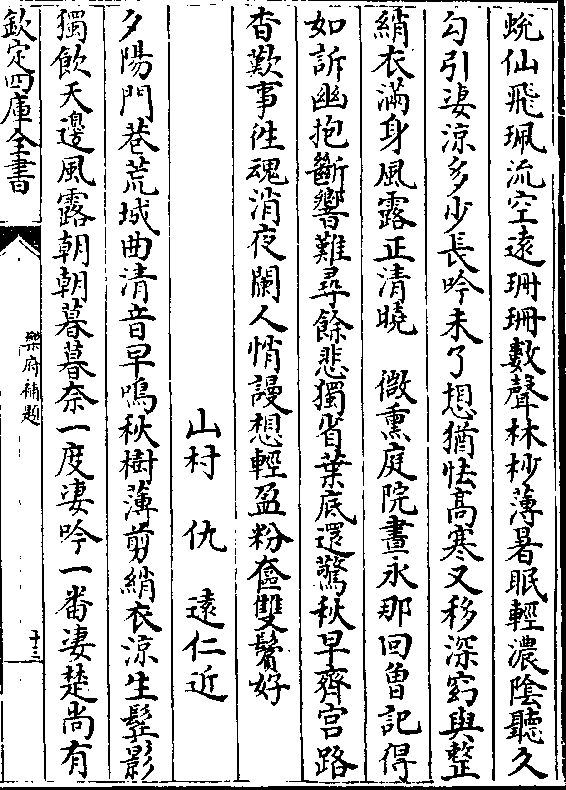 蛻仙飛珮流空遠珊珊數聲林杪薄暑眠輕濃陰聽久
勾引淒涼多少長吟未了想猶怯高寒又移深窈與整
綃衣滿身風露正清曉　微熏庭院晝永那回曾記得
如訴幽抱斷響難尋餘悲獨省葉底還驚秋早齊宫路
杳歎事徃魂消夜闌人悄謾想輕盈粉奩雙鬢好
山村仇　遠仁近
夕陽門巷荒城曲清音早鳴秋樹薄剪綃衣涼生鬂影
獨飲天邊風露朝朝暮暮奈一度淒吟一番淒楚尚有
欽定四庫全書
樂府補題
十三